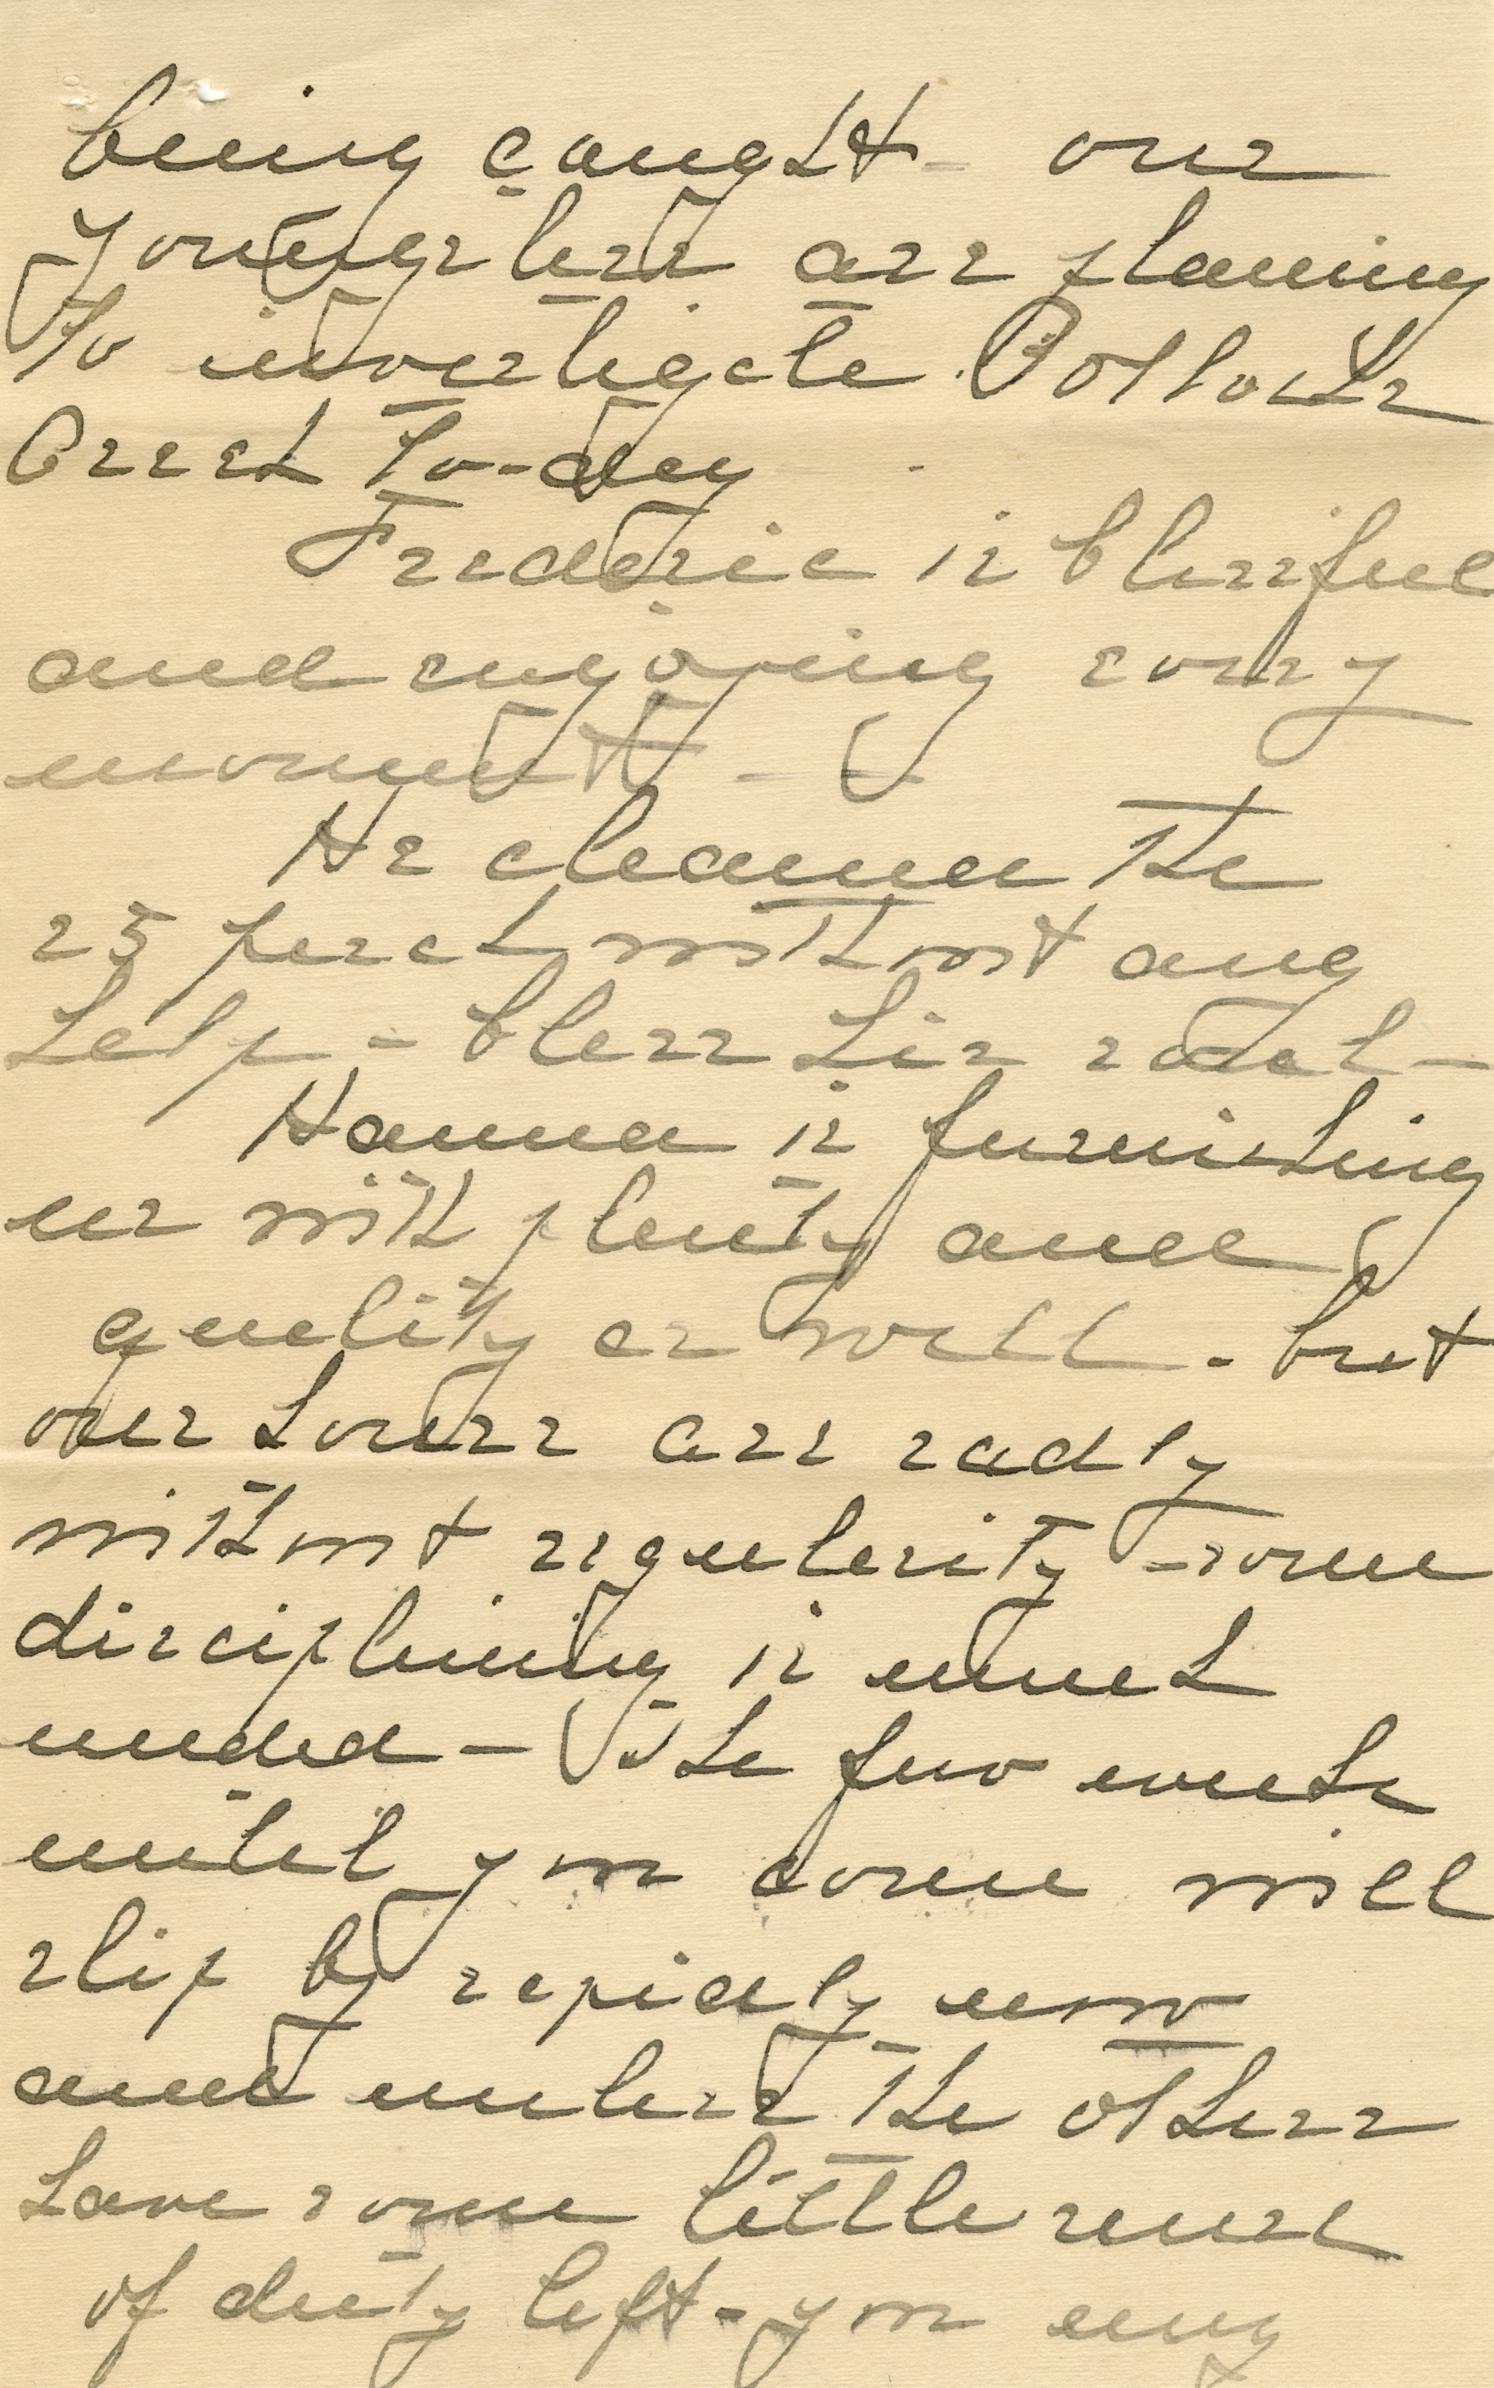 being caught - our
youngsters are planing
to investigate Pollocks
Creek to-day
Frederic is blissful
and enjoying every
moment -
He cleaned the
25 perch without any
help - bless his soul -
Hanna is furnishing
us with plenty and
quality as well - but
our hours are sadly
without regularity - some
disciplining is much
needed - The few weeks
until you come will
slip by rapidly now
and unless the others
have some little sense
of duty left - you my